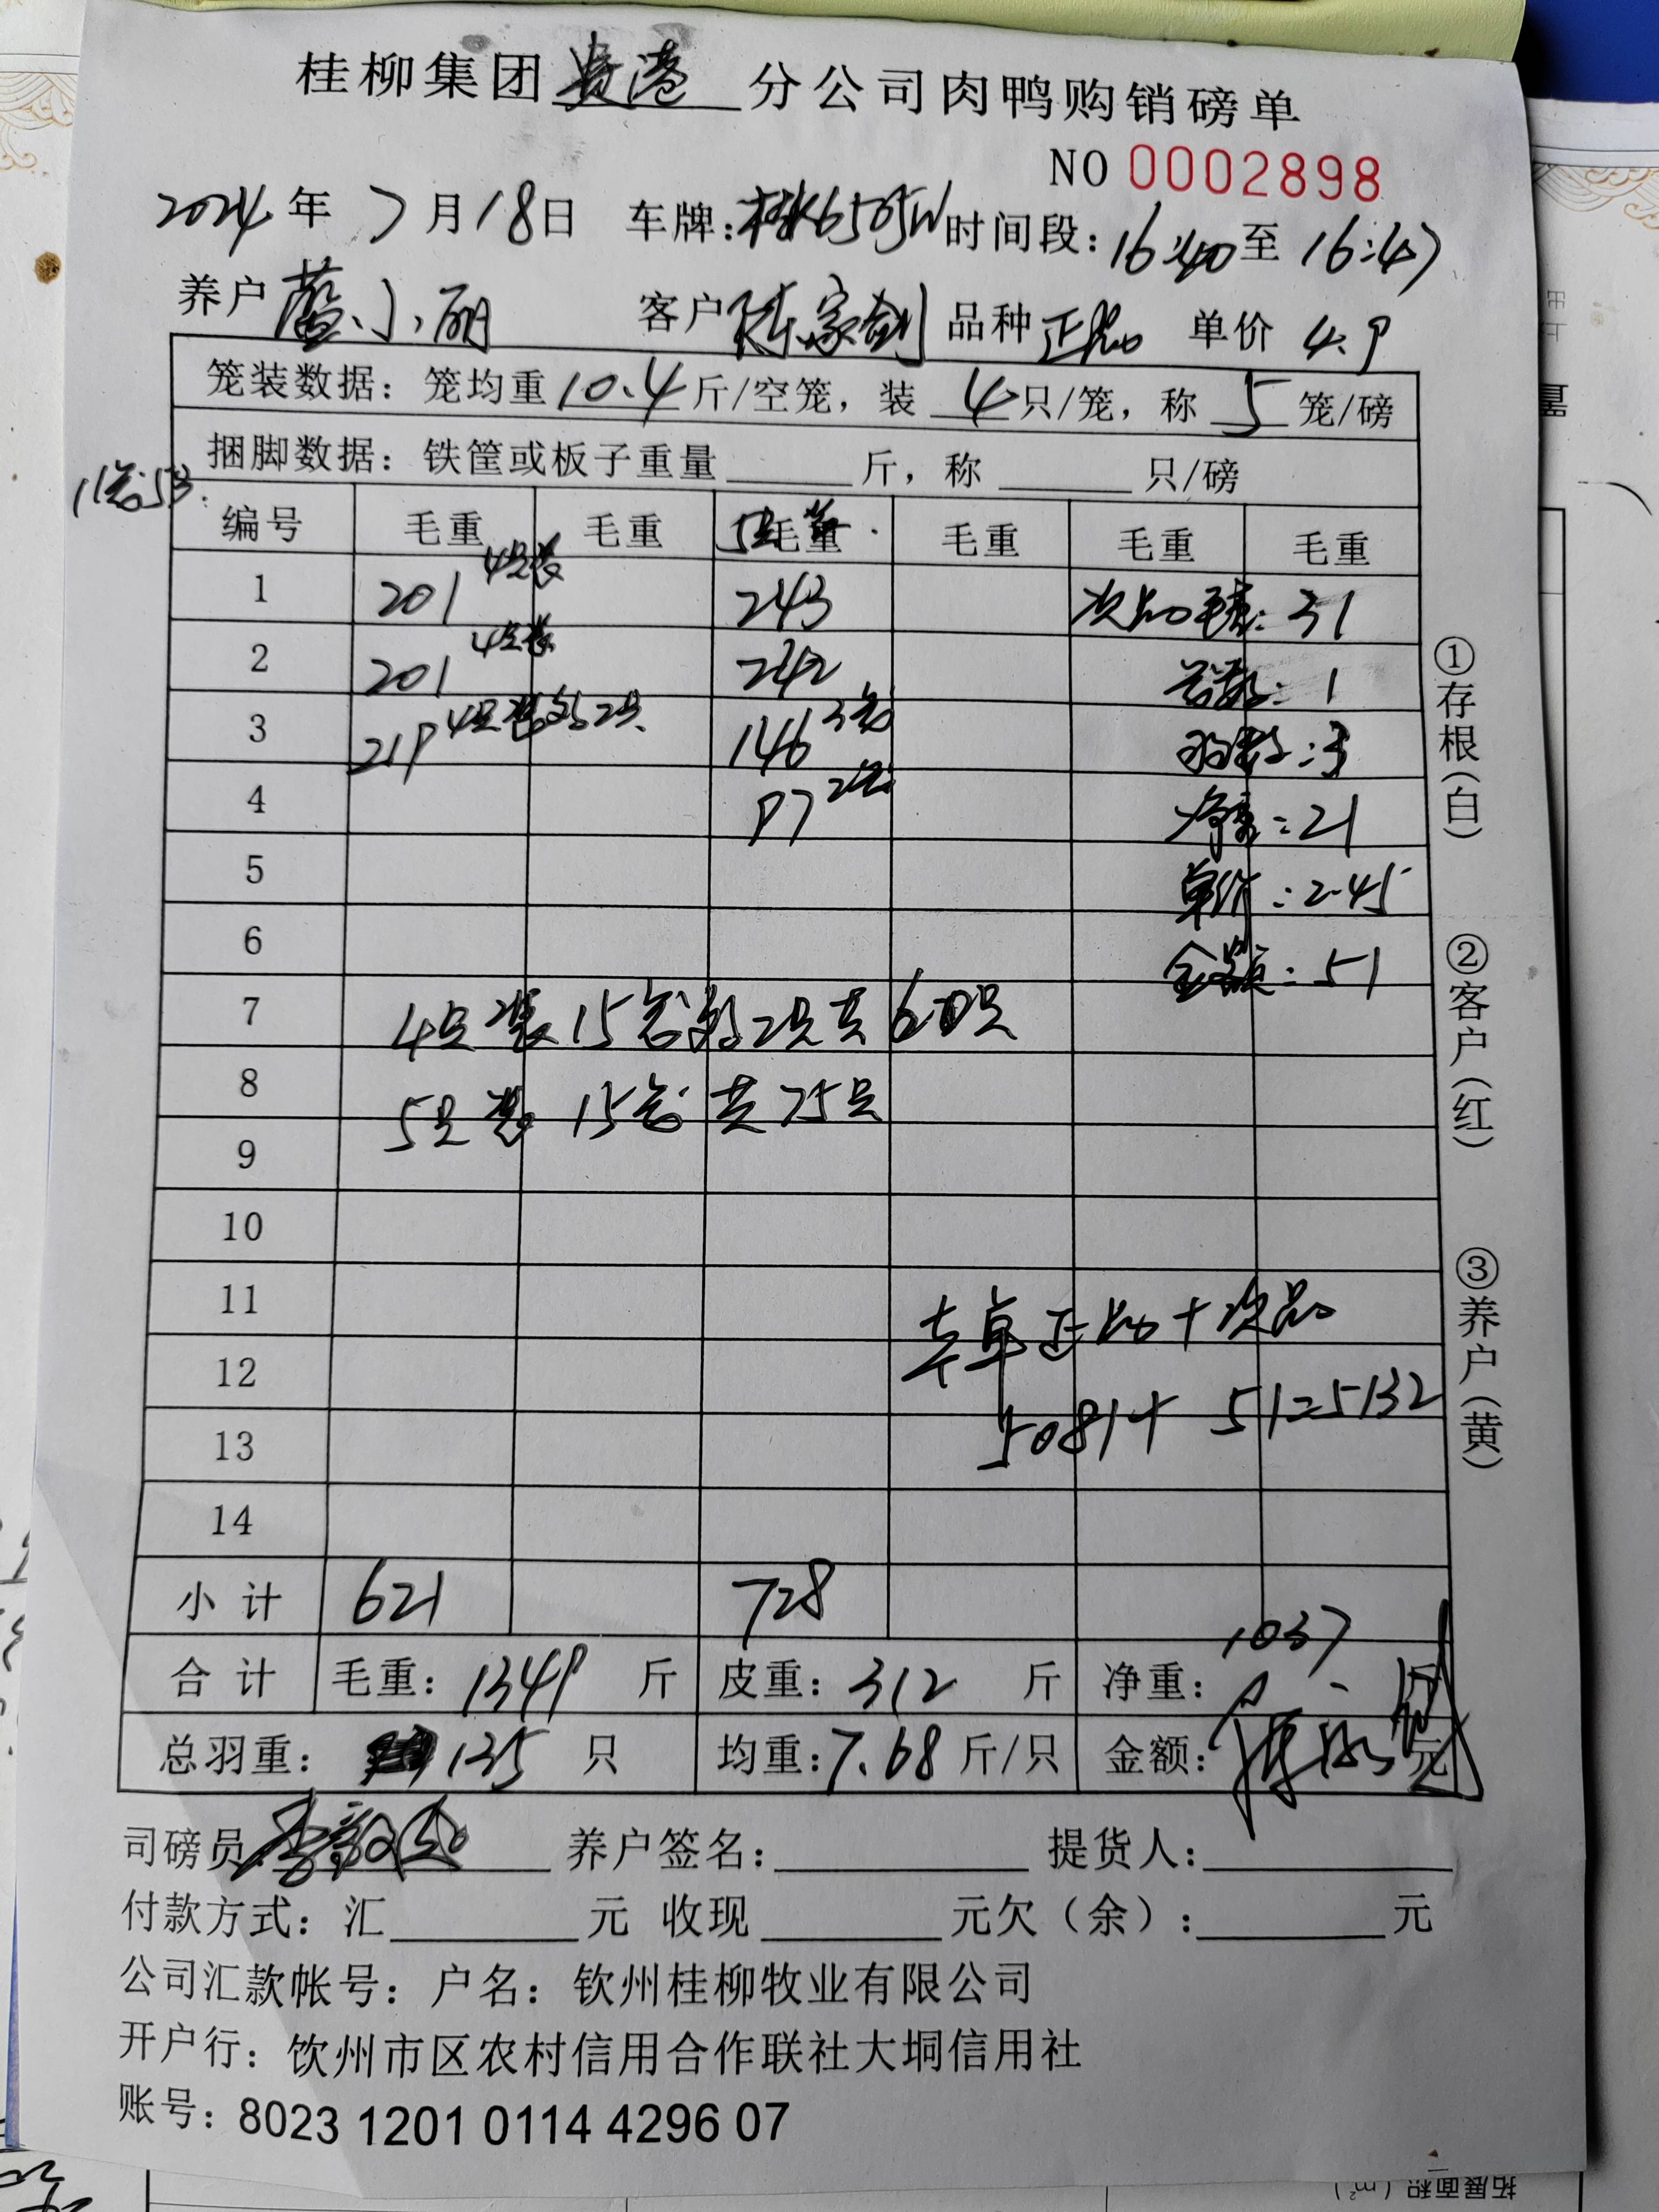 桂柳集团贵港分公司肉鸭购销磅单
NO 0002898
2024年7月18日 车牌:桂K6505W 时间段:16:40至16:47
养户 蓝小丽 客户 陈家剑 品种 正品 单价 4.9
笼装数据: 笼均重10.4斤/空笼, 装4只/笼, 称5笼/磅
捆脚数据: 铁筐或板子重量 斤, 称 只/磅
1笼5只:
编号 毛重 毛重 5只装毛重 毛重 毛重 毛重
1 201 4只装 243 次品毛重: 31
2 201 4只装 242 笼数: 1
3 219 4只装另2只 146 3笼 羽数: 3
4 97 2笼 净重: 21
5 单价: 2.45
6 金额: 51
7 4只装15笼另2只共60只
8 5只装 15笼 共75只
9
10
11 本单正品+次品
12 5081+51=5132
13
14
小计 621 728
合计 毛重: 1349 斤 皮重: 312 斤 净重: 1037 斤
总羽重: 135 只 均重: 7.68 斤/只 金额: 元
司磅员: 养户签名: 提货人:
付款方式: 汇 元 收现 元欠(余): 元
公司汇款帐号: 户名: 钦州桂柳牧业有限公司
开户行: 饮州市区农村信用合作联社大垌信用社
账号: 8023 1201 0114 4296 07
①存根(白)
②客户(红)
③养户(黄)
拓展面积(m²)